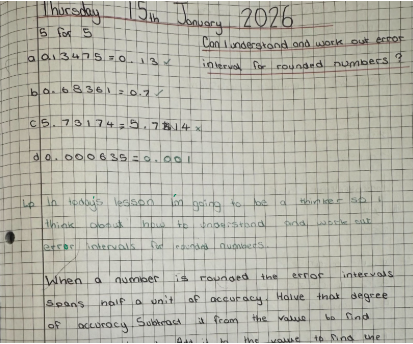 Thursday 15th January 2026
5 for 5
Can I understand and work out error
interval for rounded numbers?
a 0.13475 = 0.13 ✓
b 0.68361 = 0.7 ✓
c 5.73174 = 5.7 14 x
d 0.000635 = 0.001
Lp In today's lesson im going to be a thinker so i
think about how to understand and work out
error intervals for rounded numbers.
When a number is rounded the error intervals
spans half a unit of accuracy. Halve that degree
of accuracy Subtract it from the value to find
Add it to the value to find the